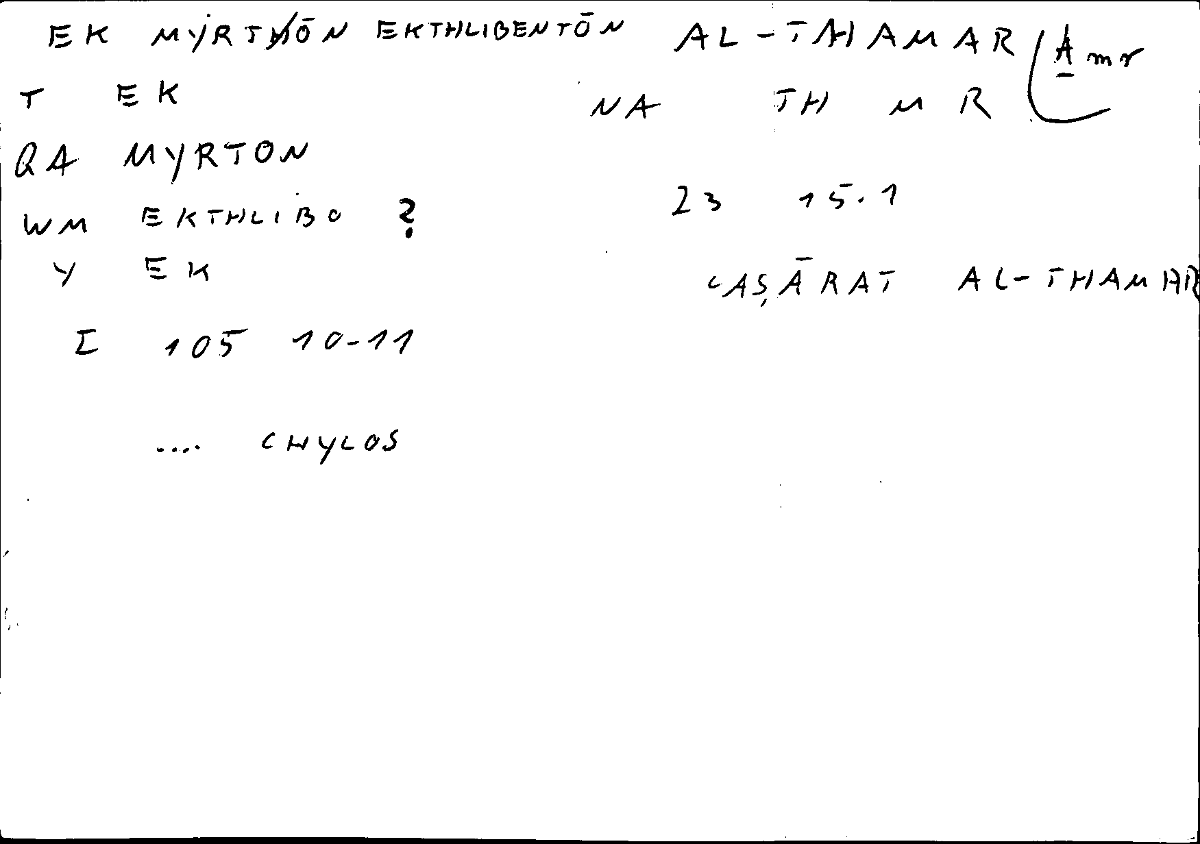 EK MYRTŌN EKTHLIBENTŌN AL-THAMAR (Amr
T EK NA TH M R
QA MYRTON
WM EKTHLIBO ? 23 15.1
Y EK
ʿAṢĀRAT AL-THAMAR
I 105 10-11
.... CHYLOS